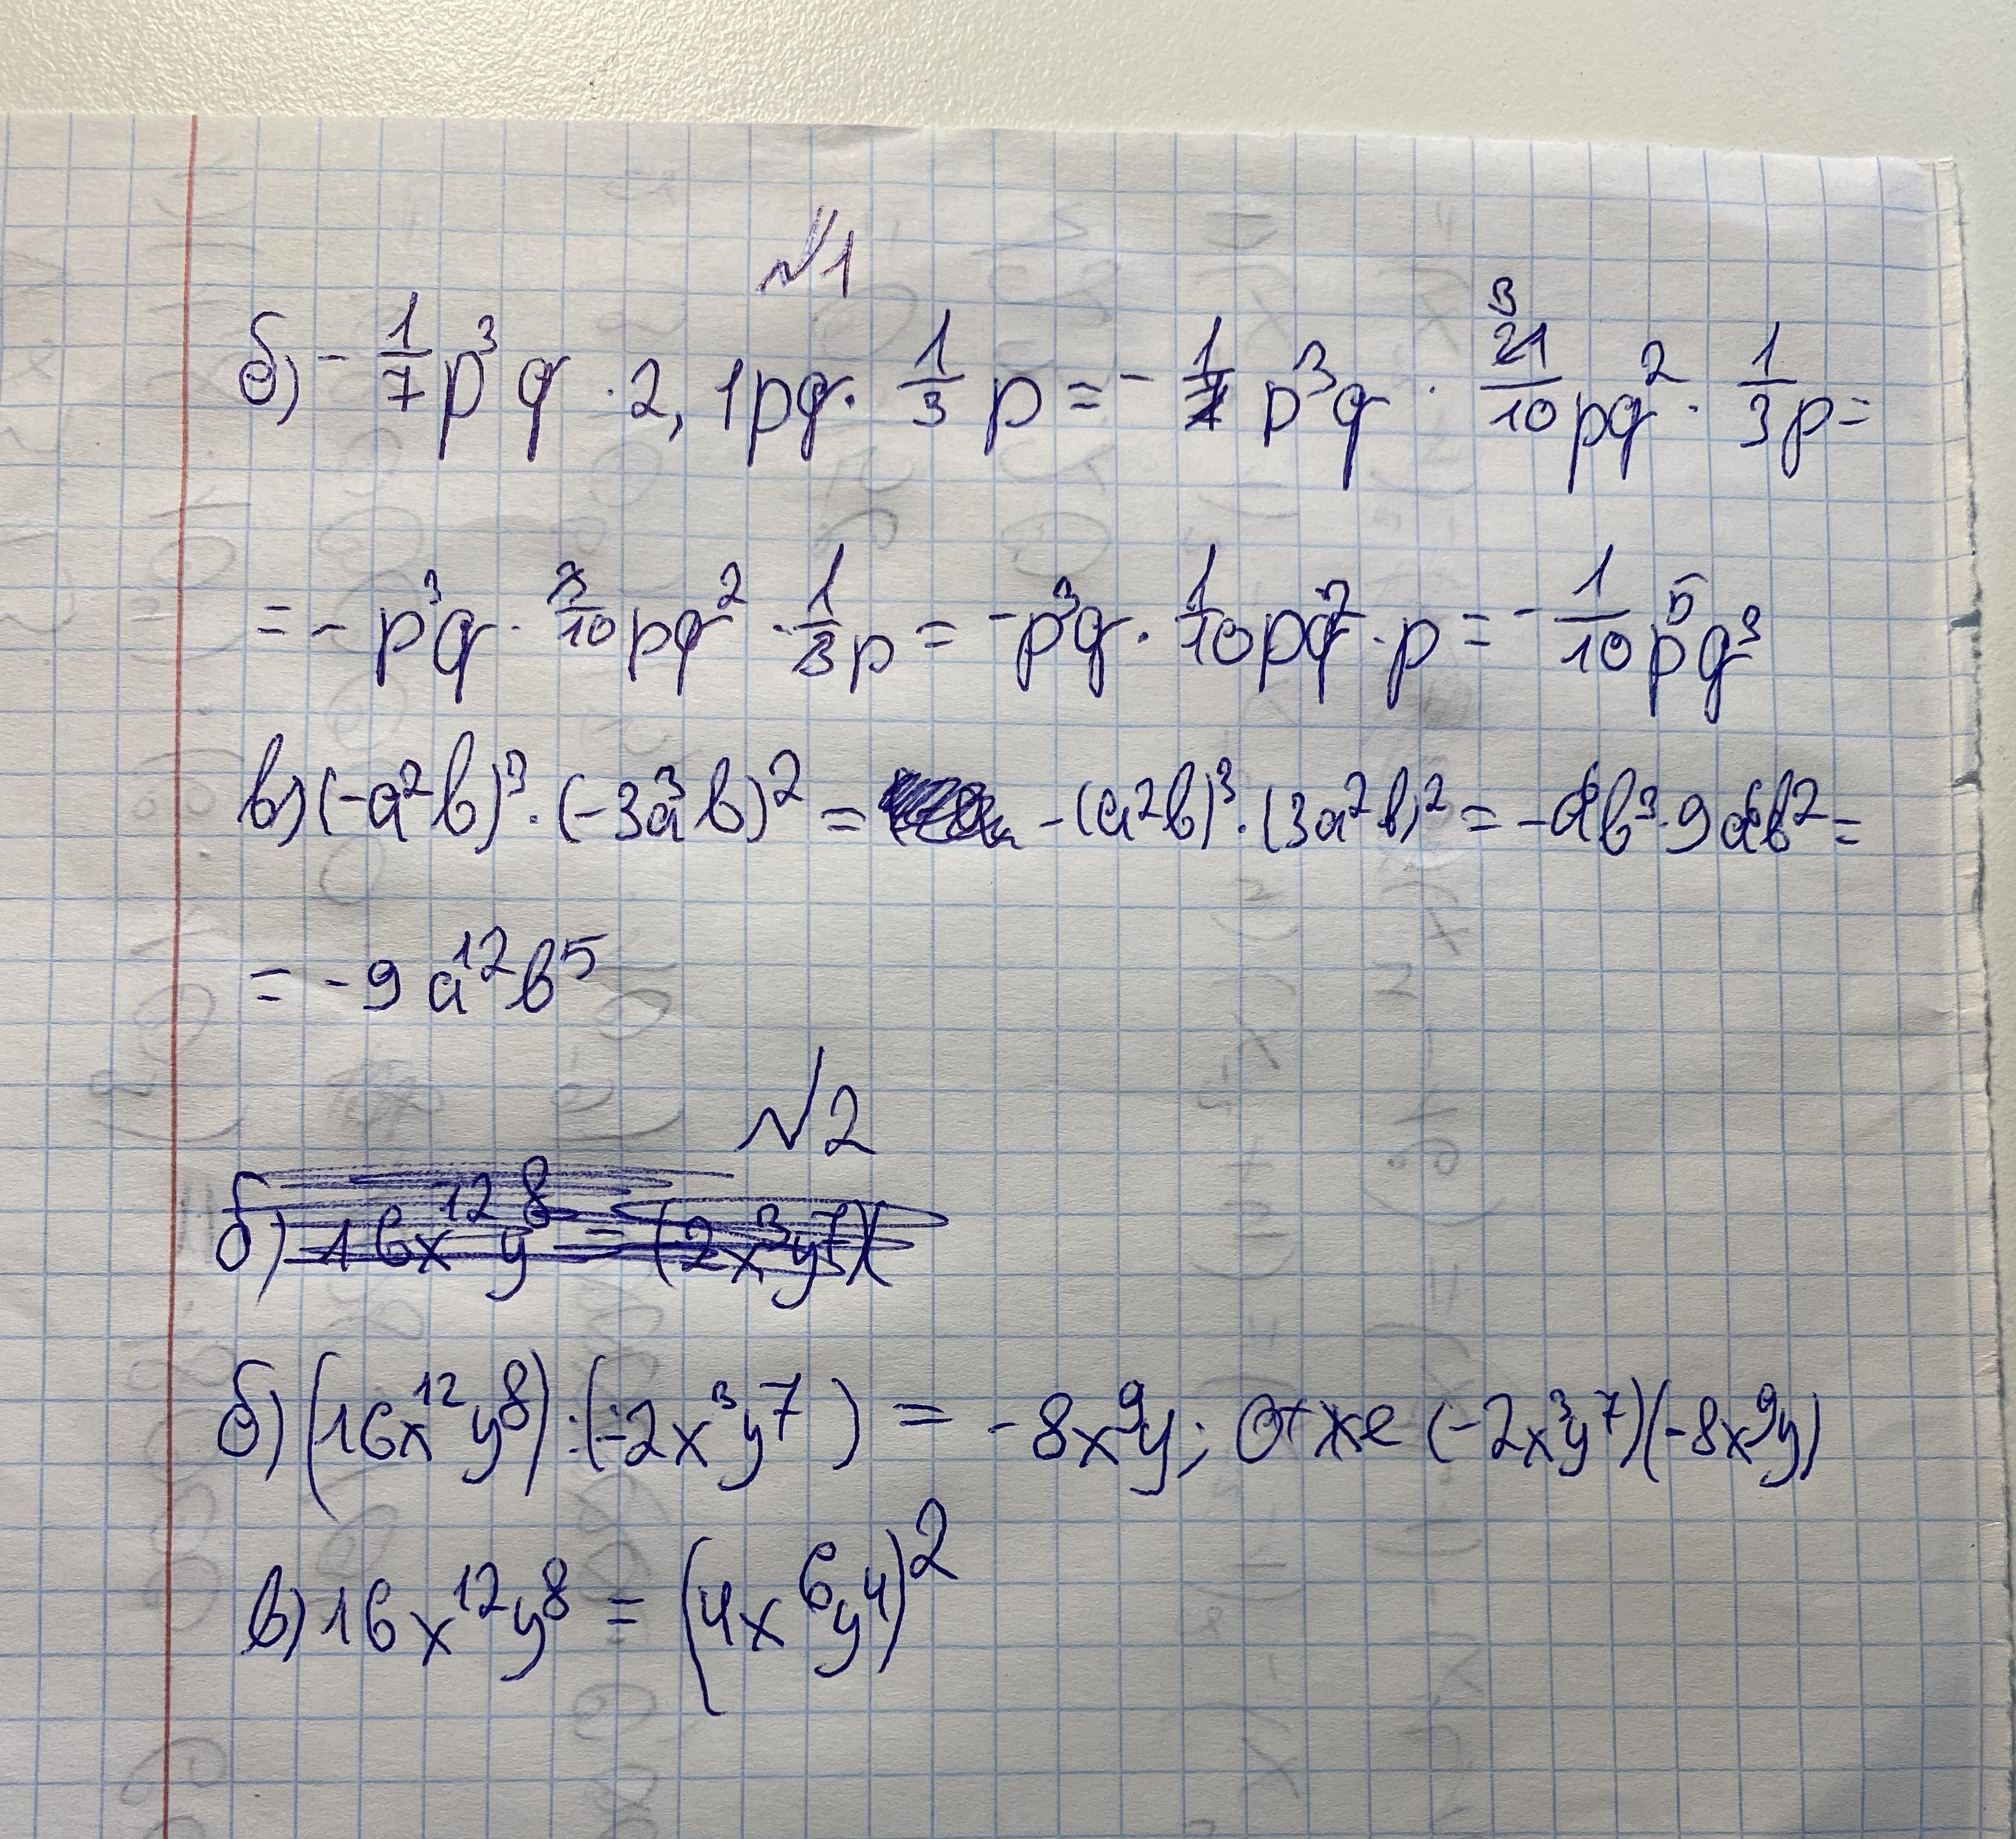 №1
б) - 1/7 p³q · 2,1pq · 1/3 p = - 1/7 p³q · 21/10 pq² · 1/3 p =
3
= - p³q · 3/10 pq² · 1/3 p = -p³q · 1/10 pq² · p = - 1/10 p⁵q³
в) (-a²b)³ · (-3a³b)² = -(a²b)³ · (3a²b)² = -a⁶b³ · 9a⁶b² =
= -9a¹²b⁵
№2
б) 16x¹²y⁸ = (2x³y⁷)(
б) (16x¹²y⁸) : (-2x³y⁷) = -8x⁹y; отже (-2x³y⁷)(-8x⁹y)
в) 16x¹²y⁸ = (4x⁶y⁴)²